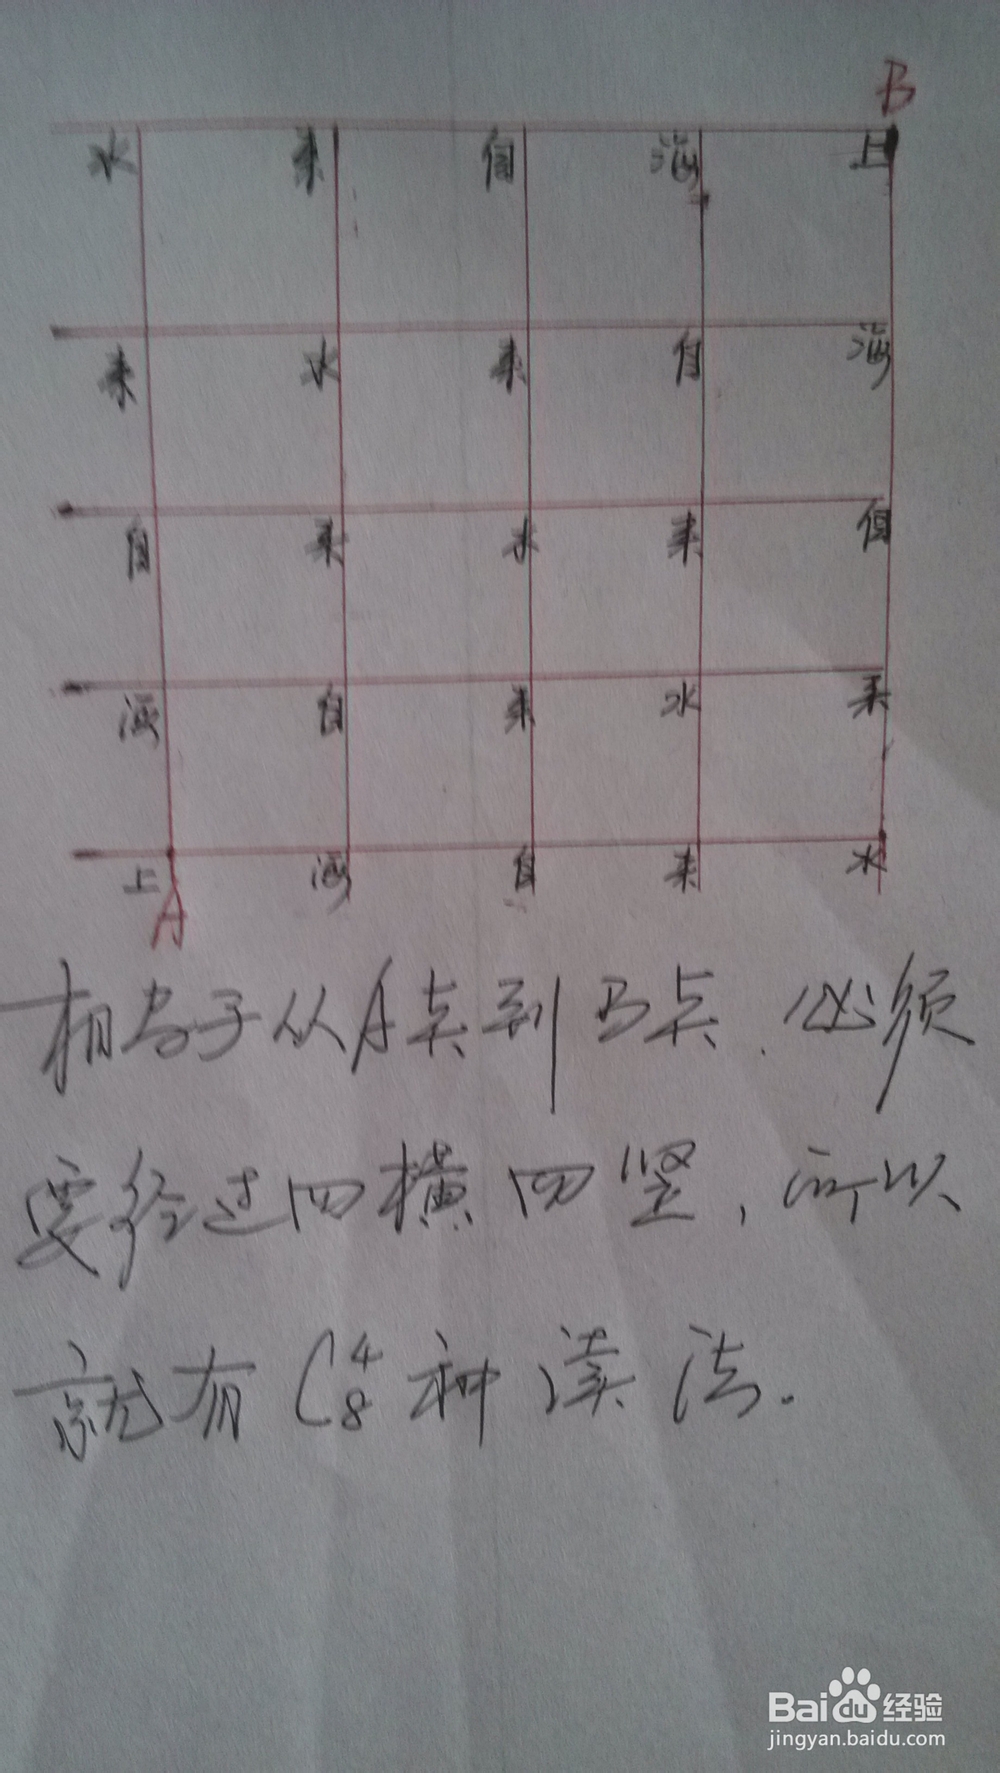 B
水 来 自 海 上
来 水 来 自 海
自 来 水 来 自
海 自 来 水 来
上 海 自 来 水
A
相当于从A点到B点.必须
要经过四横四竖,所以
就有C⁴₈种读法.
Baidu经验
jingyan.baidu.com